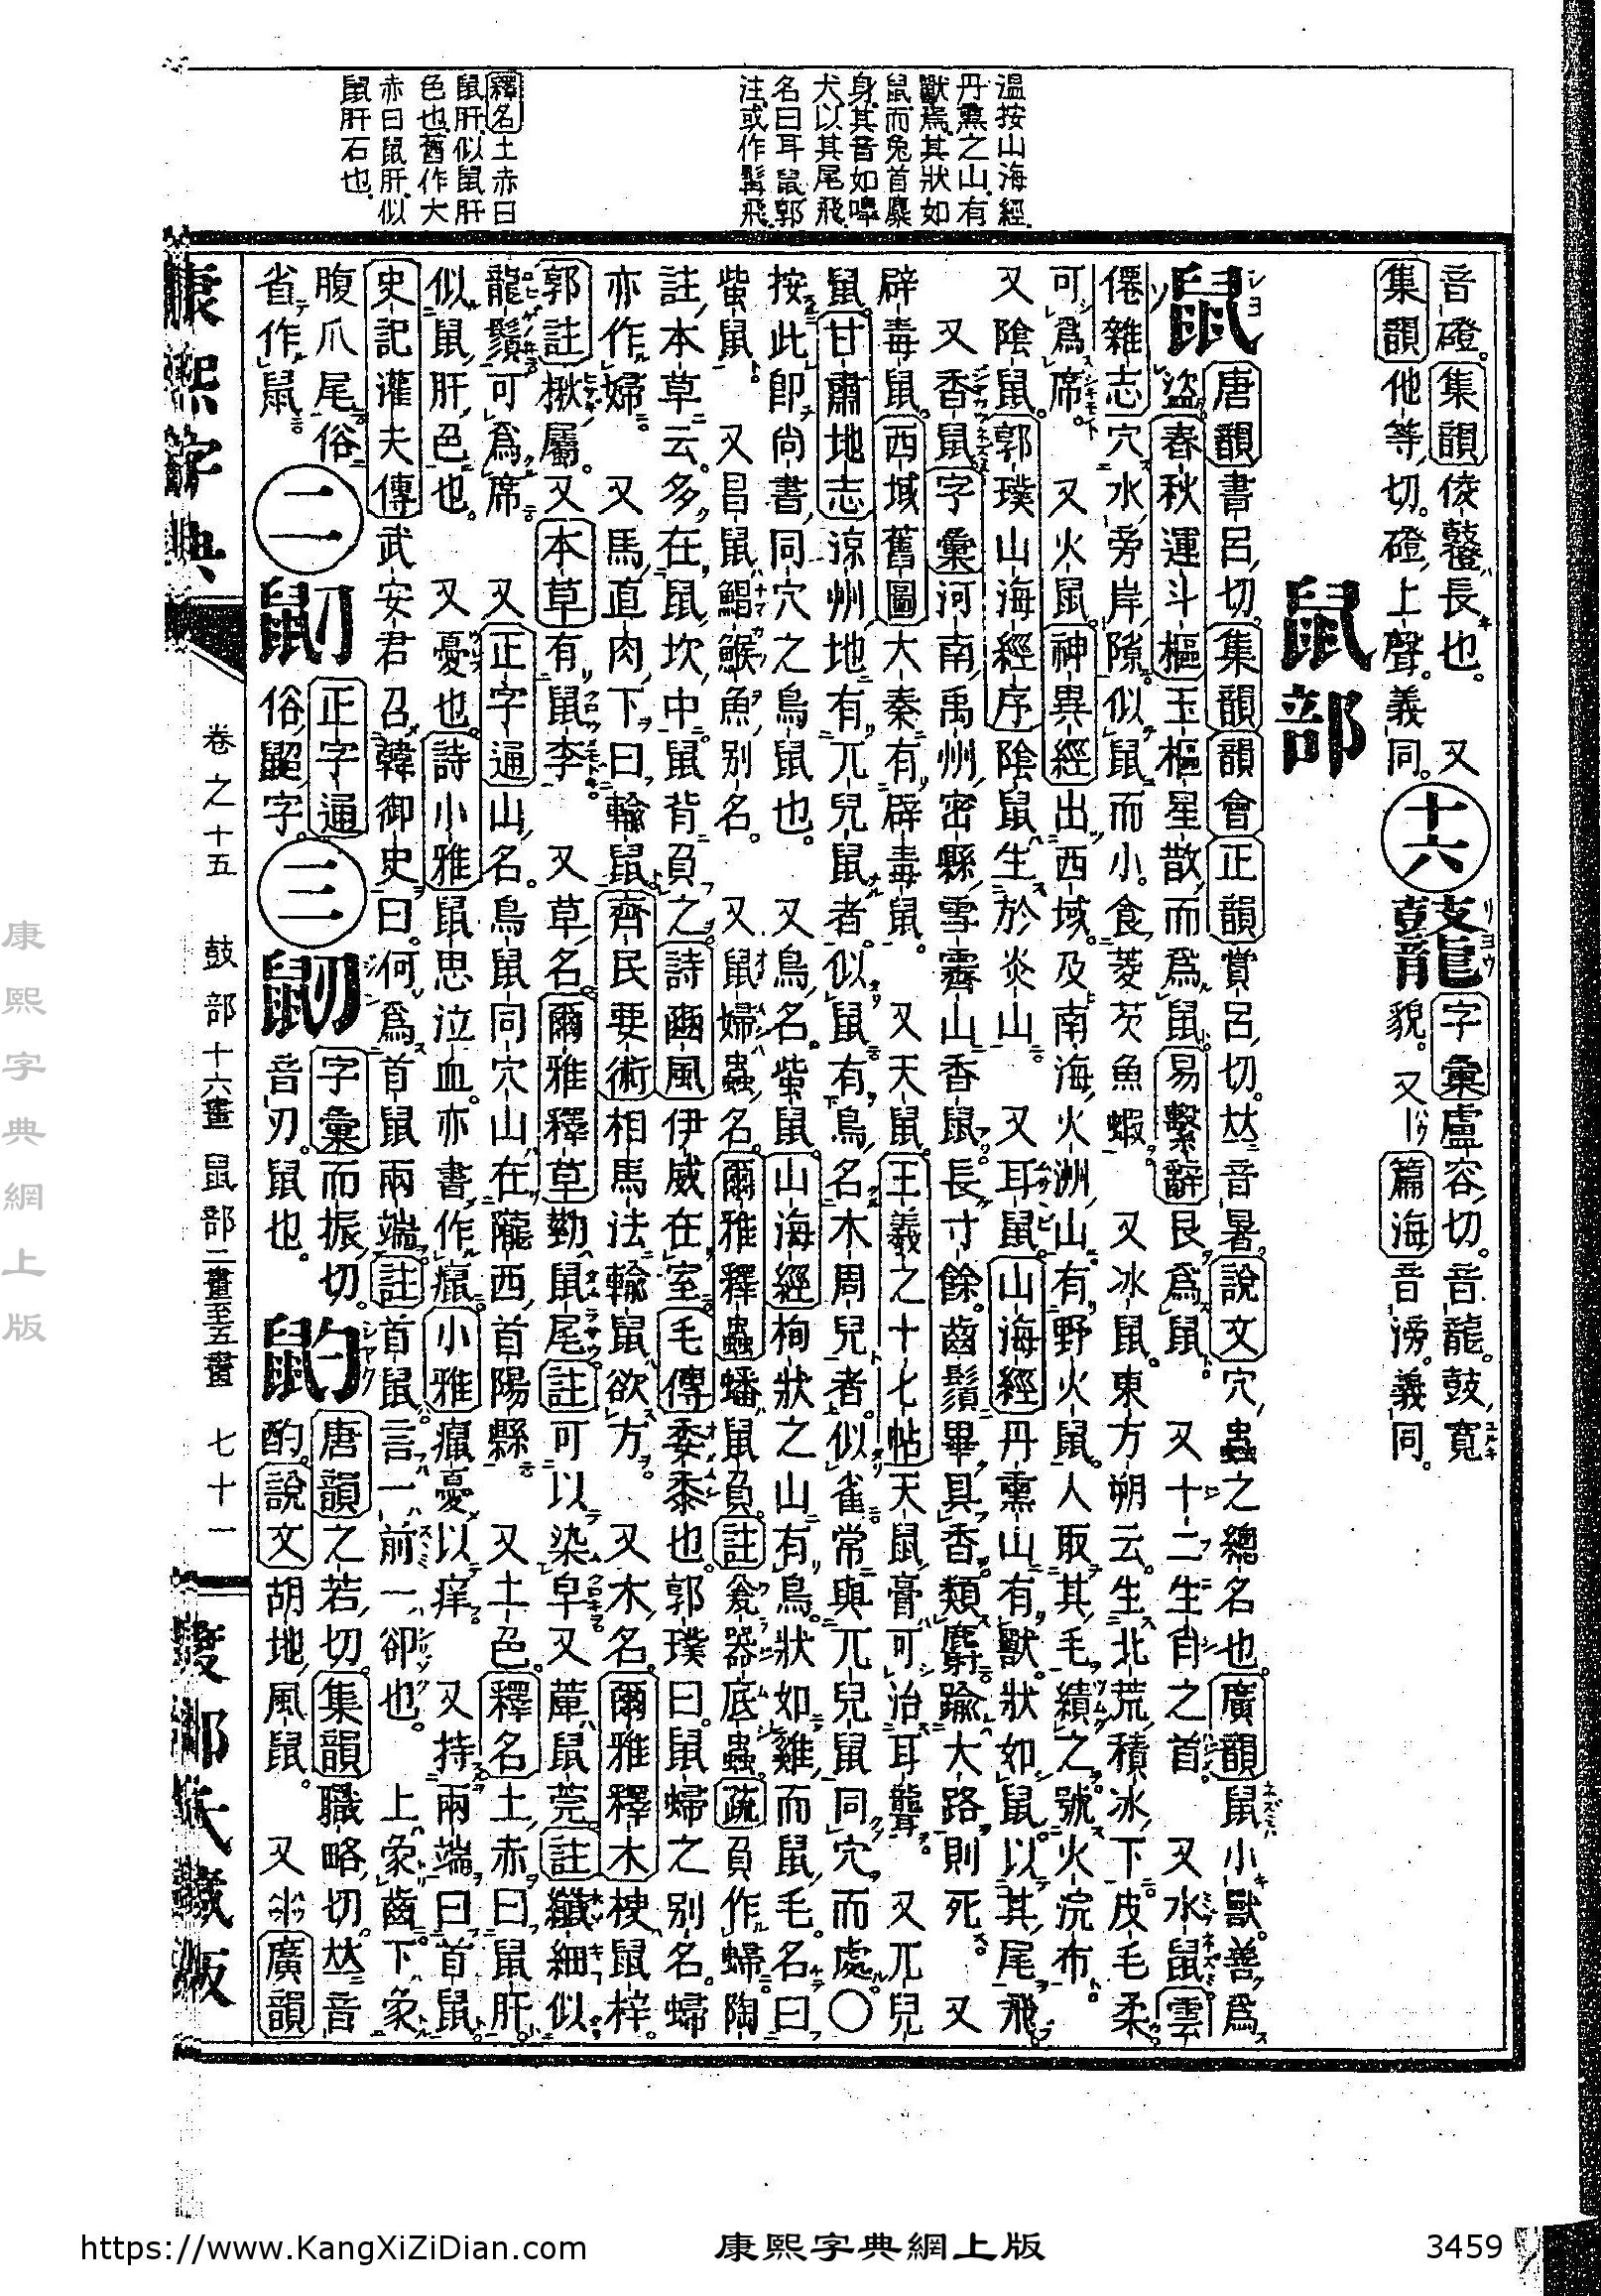 溫按山海經
丹熏之山有
獸焉其狀如
鼠而兔首麋
身其音如嘷
犬以其尾飛
名曰耳鼠郭
注或作髯飛
釋名土赤曰
鼠肝似鼠肝
色也舊作大
赤曰鼠肝似
鼠肝石也
音磴。集韻倰鼞長也。又
集韻他等切磴上聲。義同。
十六
字彙盧容切。音龍。鼓寬
貌。又篇海音滂。義同。
鼠部
鼠
唐韻書呂切。集韻韻會正韻賞呂切。𠀤音暑。說文穴蟲之總名也。廣韻鼠小獸。善爲
盜春秋運斗樞玉樞星散而爲鼠。易繫辭艮爲鼠。又十二生肖之首。又水鼠雲
僊雜志穴水旁岸隙似鼠而小。食菱芡魚蝦。又冰鼠。東方朔云。生北荒積冰下皮毛柔
可爲席。又火鼠。神異經出西域。及南海火洲山。有野火鼠。人取其毛績之號火浣布
又陰鼠。郭璞山海經序陰鼠生於炎山。又耳鼠。山海經丹熏山有獸。狀如鼠。以其尾飛
又香鼠字彙河南禹州密縣雪霽山香鼠。長寸餘。齒鬚畢具。香類麝。踰大路則死。又
辟毒鼠。西域舊圖大秦有辟毒鼠。又天鼠。王羲之十七帖天鼠膏可治耳聾。又兀兒
鼠。甘肅地志涼州地有兀兒鼠者。似鼠有鳥名木周兒者。似雀常與兀兒鼠同穴而處。
按此卽尚書同穴之鳥鼠也。又鳥名。鴜鼠山海經栒狀之山有鳥。狀如雞而鼠毛。名曰
鴜鼠。又昌鼠鯧鯸魚別名。又鼠婦蟲名。爾雅釋蟲蟠鼠負。註瓮器底蟲。疏負作蝂陶
註本草云。多在鼠坎中。鼠背負之。詩豳風伊威在室。毛傳委黍也。郭璞曰。鼠蝂之別名。蝂
亦作婦。又馬直肉下曰輸鼠。齊民要術相馬法輸鼠欲方。又木名。爾雅釋木楰鼠梓。
郭註楸屬。又本草有鼠李。又草名。爾雅釋草勤鼠尾註可以染皁又䔞鼠莞。註纖細似
龍鬚可爲席。又正字通山名。鳥鼠同穴山在隴西首陽縣。又土色。釋名土赤曰鼠肝。
似鼠肝色也。又憂也。詩小雅鼠思泣血。亦書作癙小雅癙憂以痒。又持兩端曰首鼠。
史記灌夫傳武安君召韓御史曰。何爲首鼠兩端。註首鼠言一前一卻也。上象齒下象
腹爪尾。俗
省作鼡。
二
鼠刀
正字通
俗鼦字。
三
字彙而振切。
音刃。鼠也。
鼩
唐韻之若切。集韻職略切。𠀤音
酌。說文胡地風鼠。又廣韻
康熙字典
卷之十五　鼓部十六畫　鼠部二畫至五畫　七十一
藏版
康熙字典網上版
https://www.KangXiZiDian.com
康熙字典網上版
3459